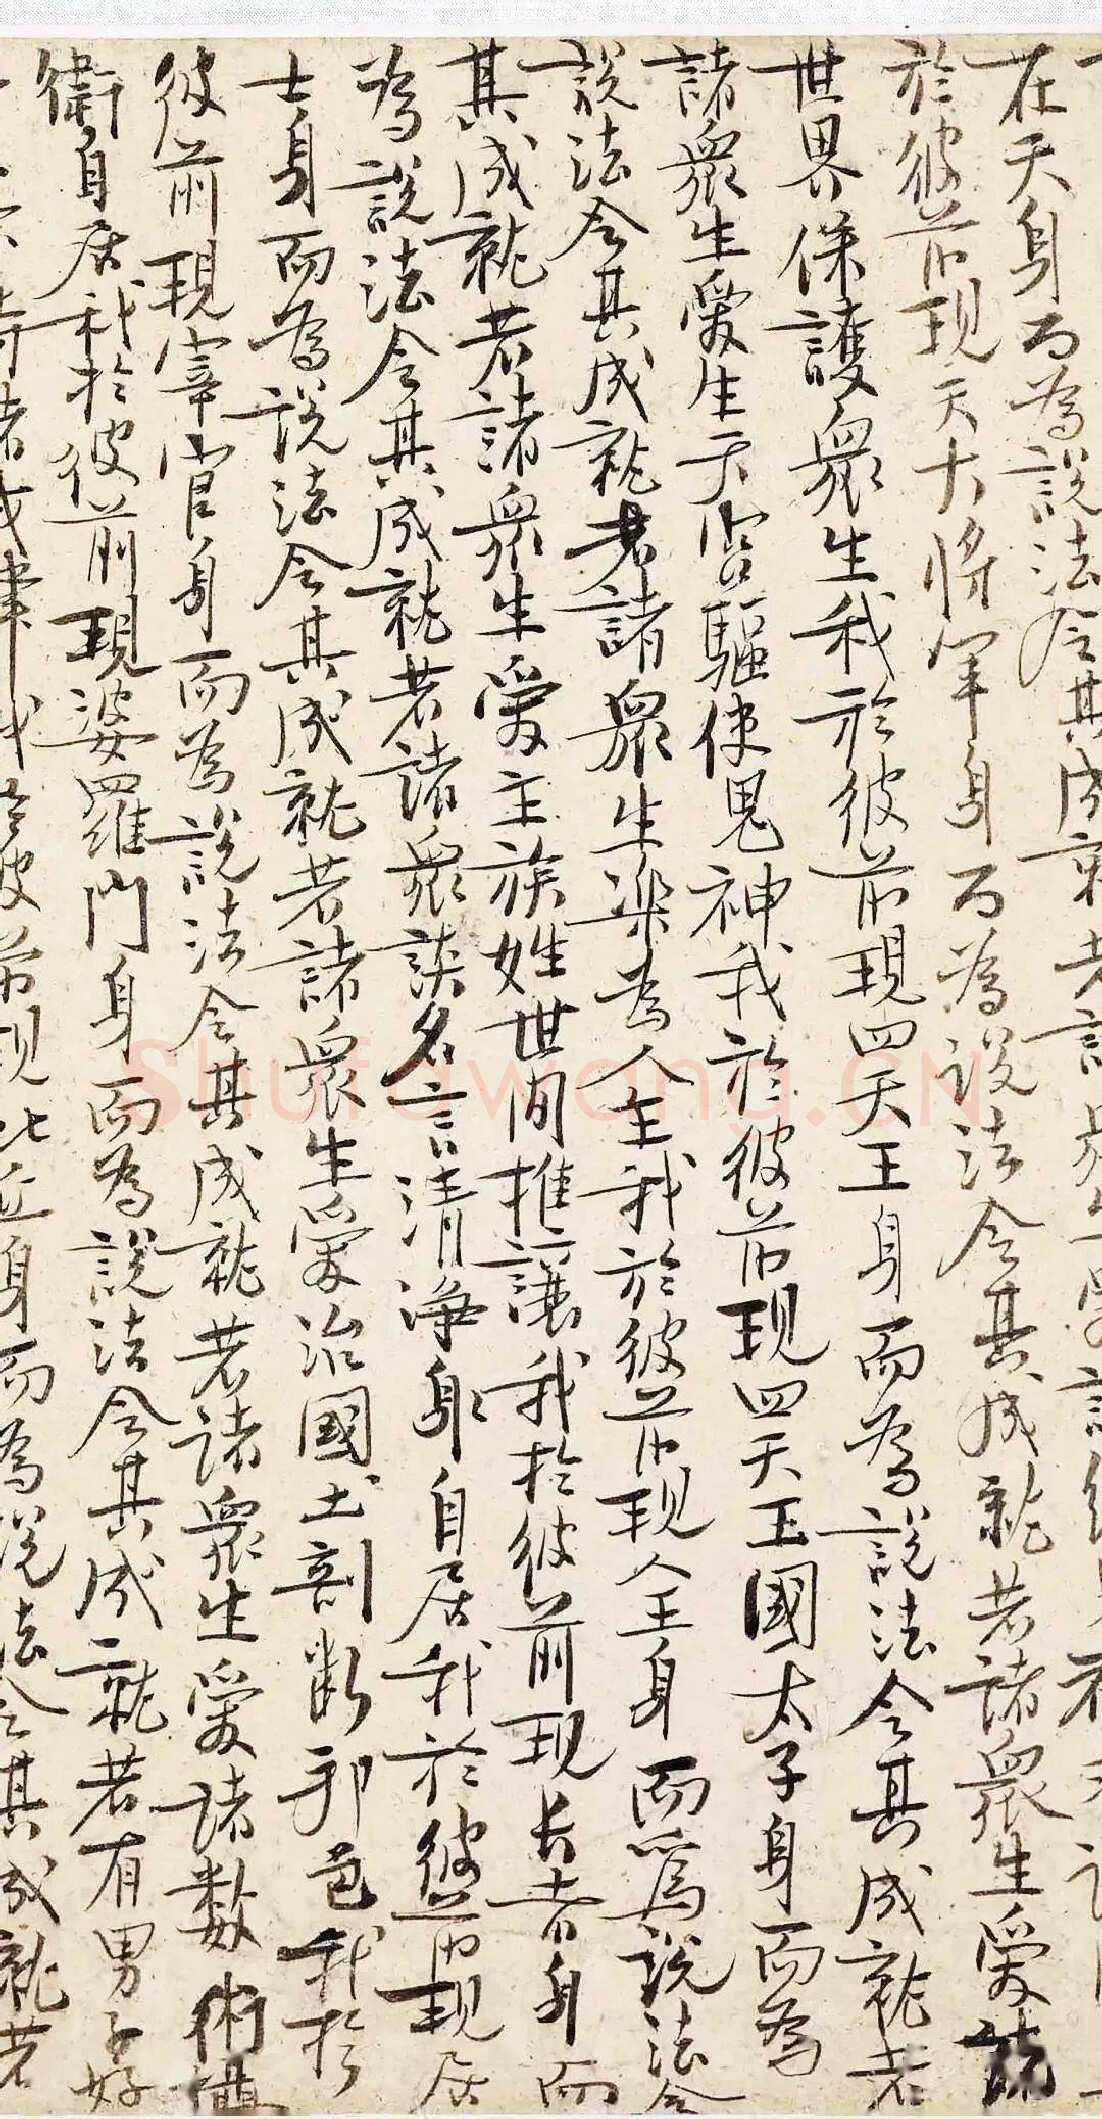 在天身而為說法令其成就若諸
於彼前現天大將軍身而為說法令其成就若諸衆生愛統
世界保護衆生我於彼前現四天王身而為說法令其成就若
諸衆生愛生天宮驅使鬼神我於彼前現四天王國太子身而為
說法令其成就若諸衆生樂為人王我於彼前現人王身而為說法令
其成就若諸衆生愛主族姓世間推讓我於彼前現長者身而
為說法令其成就若諸衆談名言清淨身自居我於彼前現居
士身而為說法令其成就若諸衆生愛治國土剖斷邦邑我於
彼前現宰官身而為說法令其成就若諸衆生愛諸數術攝
衛自居我於彼前現婆羅門身而為說法令其成就若有男子好
持諸戒律我於彼前現比丘身而為說法令其成就若
shufawang.CN